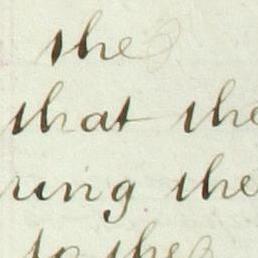 the
that the
ring the
to the